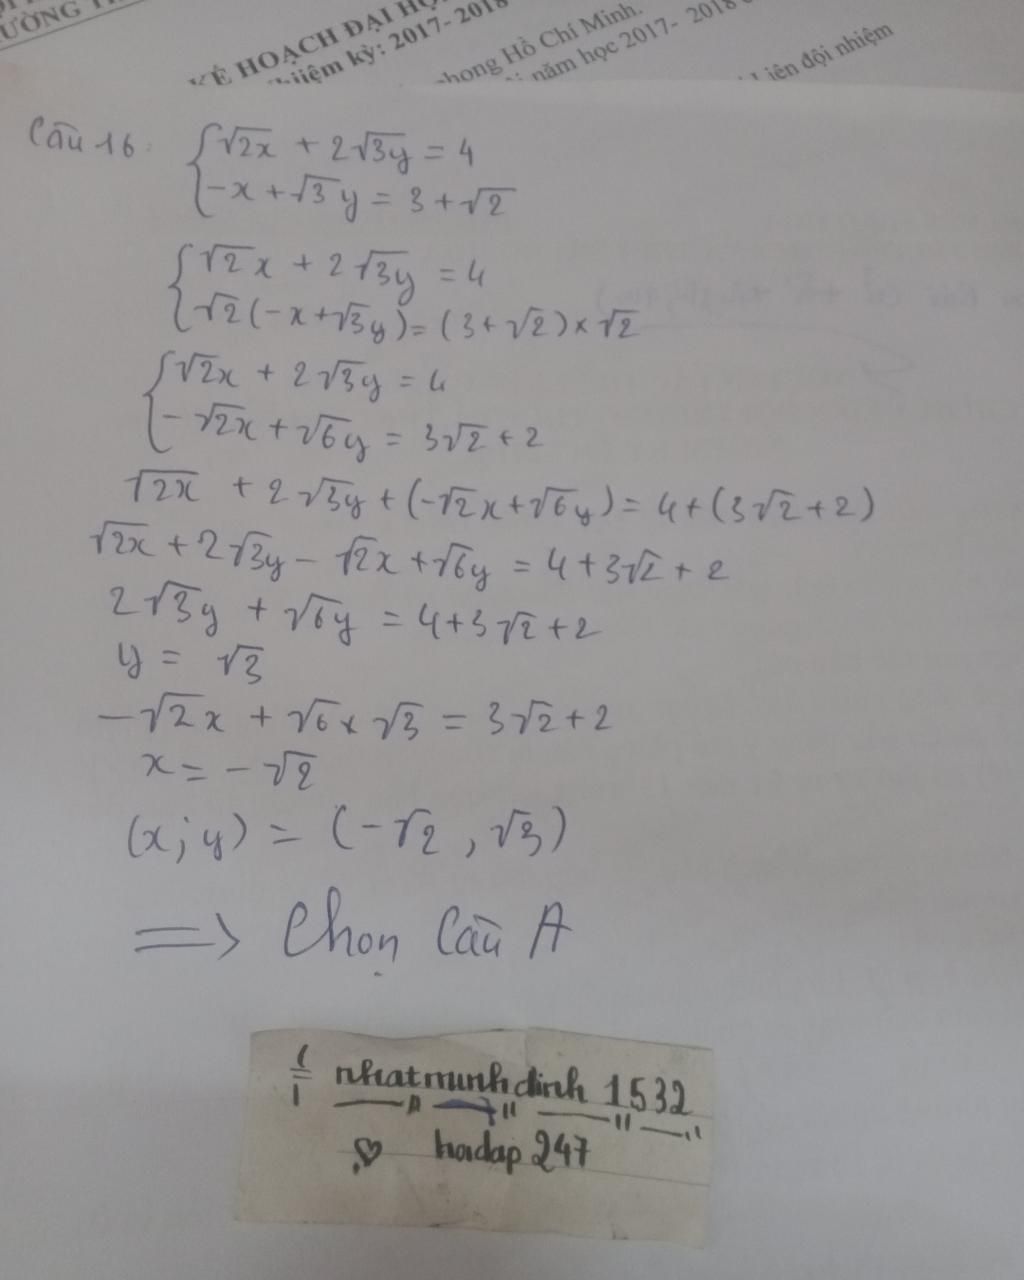 ƯỜNG T
KẾ HOẠCH ĐẠI HỘ
nhiệm kỳ: 2017- 2018
phong Hồ Chí Minh.
năm học 2017- 2018
Liên đội nhiệm
Câu 16: {√2x + 2√3y = 4
-x + √3y = 3 + √2
{√2x + 2√3y = 4
√2(-x+√3y) = (3+√2)×√2
{√2x + 2√3y = 4
-√2x + √6y = 3√2 + 2
√2x + 2√3y + (-√2x+√6y) = 4+(3√2+2)
√2x + 2√3y - √2x + √6y = 4+3√2+2
2√3y + √6y = 4+3√2+2
y = √3
-√2x + √6 × √3 = 3√2+2
x = -√2
(x;y) = (-√2, √3)
=> Chọn Câu A
nhatminhdinh 1532
hoidap 247